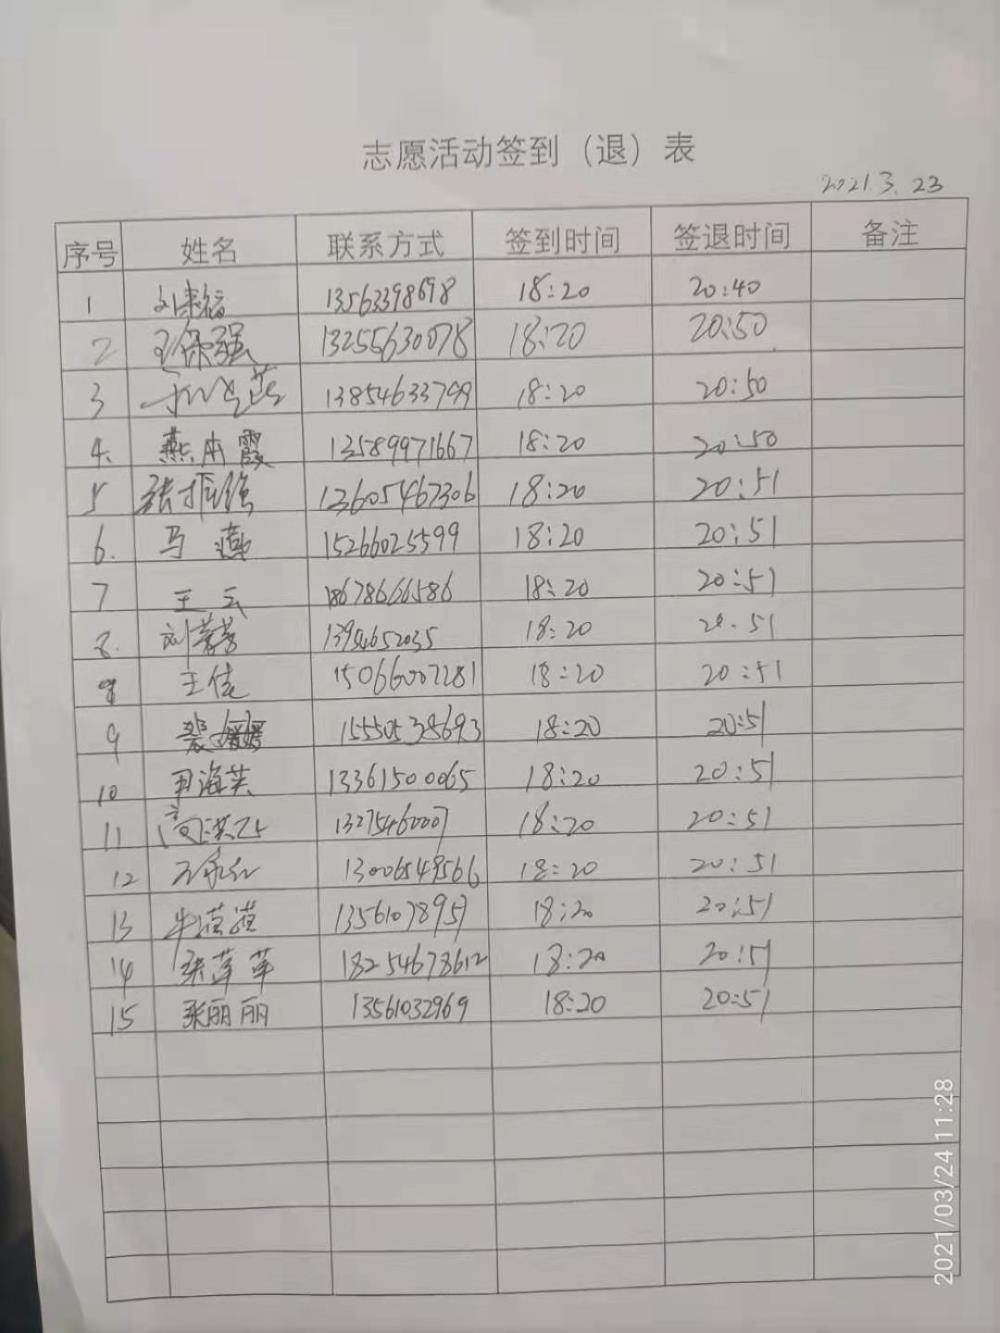 志愿活动签到（退）表
2021.3.23
序号 姓名 联系方式 签到时间 签退时间 备注
1 13563398698 18:20 20:40
2 王保强 13255630078 18:20 20:50
3 13854633799 18:20 20:50
4. 燕本霞 13589971667 18:20 20:50
5 张振强 13605467306 18:20 20:51
6. 马燕 15266025599 18:20 20:51
7 王云 18678666586 18:20 20:51
8. 刘蓉蓉 1394652035 18:20 20.51
王佳 15066007281 18:20 20:51
9 裴媛媛 15550538693 18:20 20:51
10 尹海英 13361500065 18:20 20:51
11 13275460007 18:20 20:51
12 13006549566 18:20 20:51
13 牛范范 13561078957 18:20 20:51
14 梁莲苹 18254673612 18:20 20:51
15 张丽丽 13561032969 18:20 20:51
2021/03/24 11:28